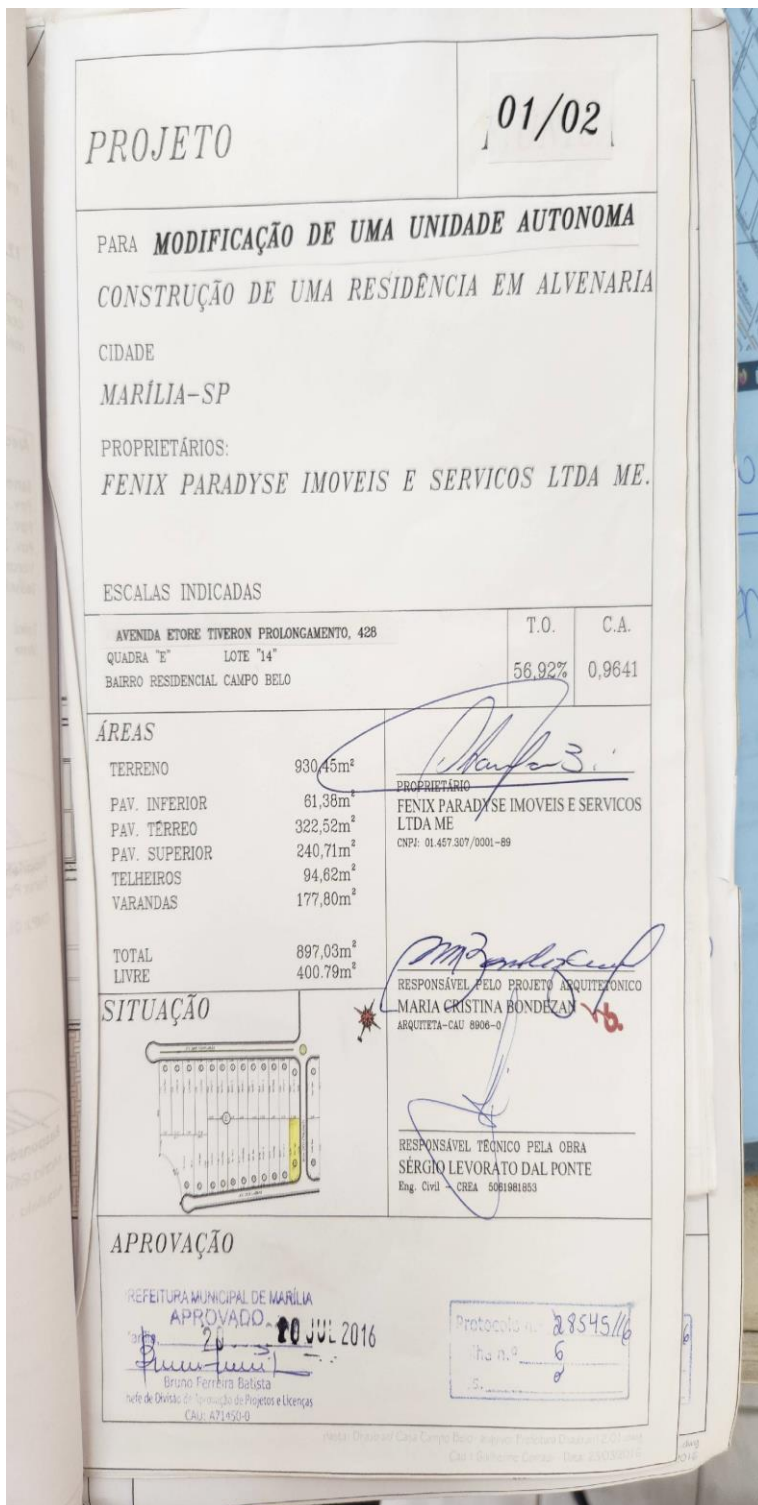 PROJETO
01/02
PARA MODIFICAÇÃO DE UMA UNIDADE AUTONOMA
CONSTRUÇÃO DE UMA RESIDÊNCIA EM ALVENARIA
CIDADE
MARÍLIA-SP
PROPRIETÁRIOS:
FENIX PARADYSE IMOVEIS E SERVICOS LTDA ME.
ESCALAS INDICADAS
AVENIDA ETORE TIVERON PROLONGAMENTO, 428
QUADRA "E" LOTE "14"
BAIRRO RESIDENCIAL CAMPO BELO
T.O. C.A.
56,92% 0,9641
ÁREAS
TERRENO 930,45m²
PAV. INFERIOR 61,38m²
PAV. TÉRREO 322,52m²
PAV. SUPERIOR 240,71m²
TELHEIROS 94,62m²
VARANDAS 177,80m²
TOTAL 897,03m²
LIVRE 400.79m²
PROPRIETÁRIO
FENIX PARADYSE IMOVEIS E SERVICOS
LTDA ME
CNPJ: 01.457.307/0001-89
RESPONSÁVEL PELO PROJETO ARQUITETONICO
MARIA CRISTINA BONDEZAN
ARQUITETA-CAU 8906-0
RESPONSÁVEL TÉCNICO PELA OBRA
SÉRGIO LEVORATO DAL PONTE
Eng. Civil - CREA 5061981853
SITUAÇÃO
APROVAÇÃO
PREFEITURA MUNICIPAL DE MARÍLIA
APROVADO
20 JUL 2016
Bruno Ferreira Batista
Chefe de Divisão de Aprovação de Projetos e Licenças
CAU: A71450-0
Protocolo n.º 28545/16
Folha n.º 6